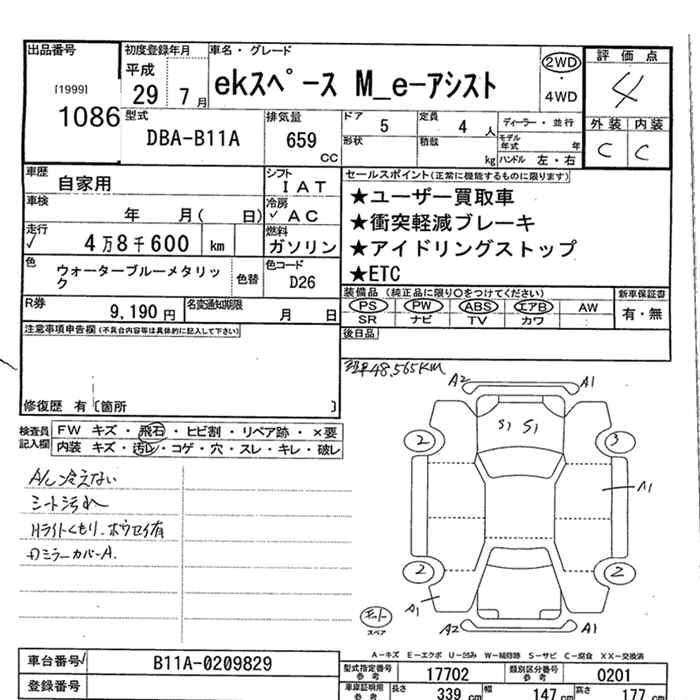 出品番号
[1999]
1086
初度登録年月
平成
29 7月
車名・グレード
ekスペース M_e-アシスト
2WD
・
4WD
評価点
4
外装 内装
C C
型式
DBA-B11A
排気量
659
CC
ドア
5
定員
4 人
ディーラー・並行
形状
積載
kg
モデル年式 年
ハンドル 左・右
車歴
自家用
シフト
IAT
車検
年 月( 日)
冷房
✓ AC
走行
✓ 4万8千600 km
燃料
ガソリン
色
ウォーターブルーメタリック
色替
色コード
D26
R券
9,190円
名変通知期限
月 日
セールスポイント(正常に機能するものに限ります)
★ユーザー買取車
★衝突軽減ブレーキ
★アイドリングストップ
★ETC
装備品 (純正品に限り○をつけてください)
PS PW ABS エアB AW
SR ナビ TV カワ
新車保証書
有・無
後日品
注意事項申告欄(不具合内容等は具体的に記入して下さい)
修復歴 有〔箇所 〕
48,565KM
検査員記入欄
FW キズ・飛石・ヒビ割・リペア跡・×要
内装 キズ・汚レ・コゲ・穴・スレ・キレ・破レ
A/C冷えない
シート汚れ
Hライトくもり.
ミラーカバーA.
A2 A1
S1 S1
2 3
A1
2 2
A1
A2 A1
スペア
A-キズ E-エクボ U-凹み W-補修跡 S-サビ C-腐食 XX-交換済
車台番号
B11A-0209829
登録番号
型式指定番号 参考
17702
類別区分番号 参考
0201
車庫証明用 参考
長さ 339 cm
幅 147 cm
高さ 177 cm